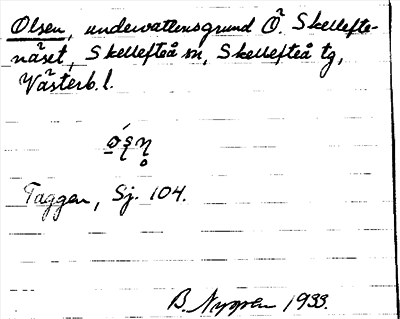 Olsen, undervattensgrund Ö. Skellefte-
näset, Skellefteå sn, Skellefteå tg,
Västerb. l.
Taggen, Sj. 104.
B. Nygren 1933